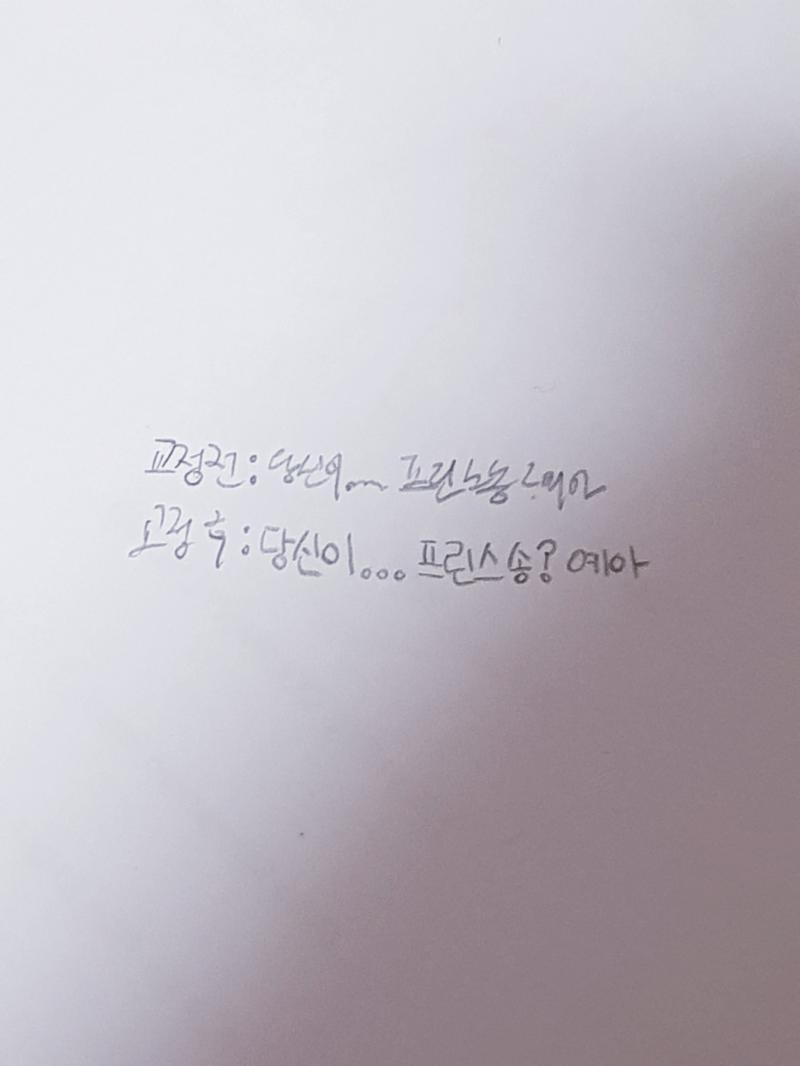 교정전: 당신이... 프린스송? 예아
교정 후: 당신이... 프린스송? 예아